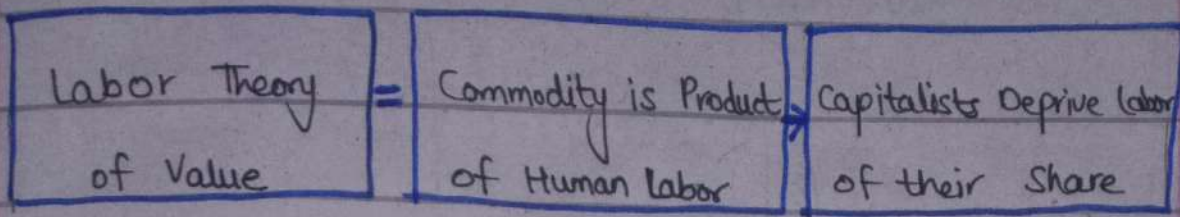 Labor Theory
of Value
=
Commodity is Product
of Human Labor
→
Capitalists Deprive Labor
of their Share